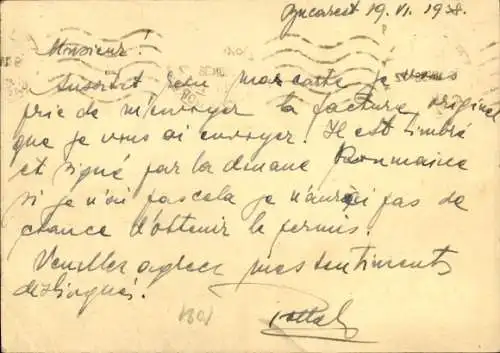 Bucarest 19. VI. 1938.
Monsieur!
Aussitôt reçu ma carte je vous
prie de m'envoyer la facture original
que je vous ai envoyer. Il est timbré
et signé par la douane Roumaine
si je n'ai pas cela je n'aurai pas de
chance d'obtenir le permis.
Veuillez agréer mes sentiments
distingués.